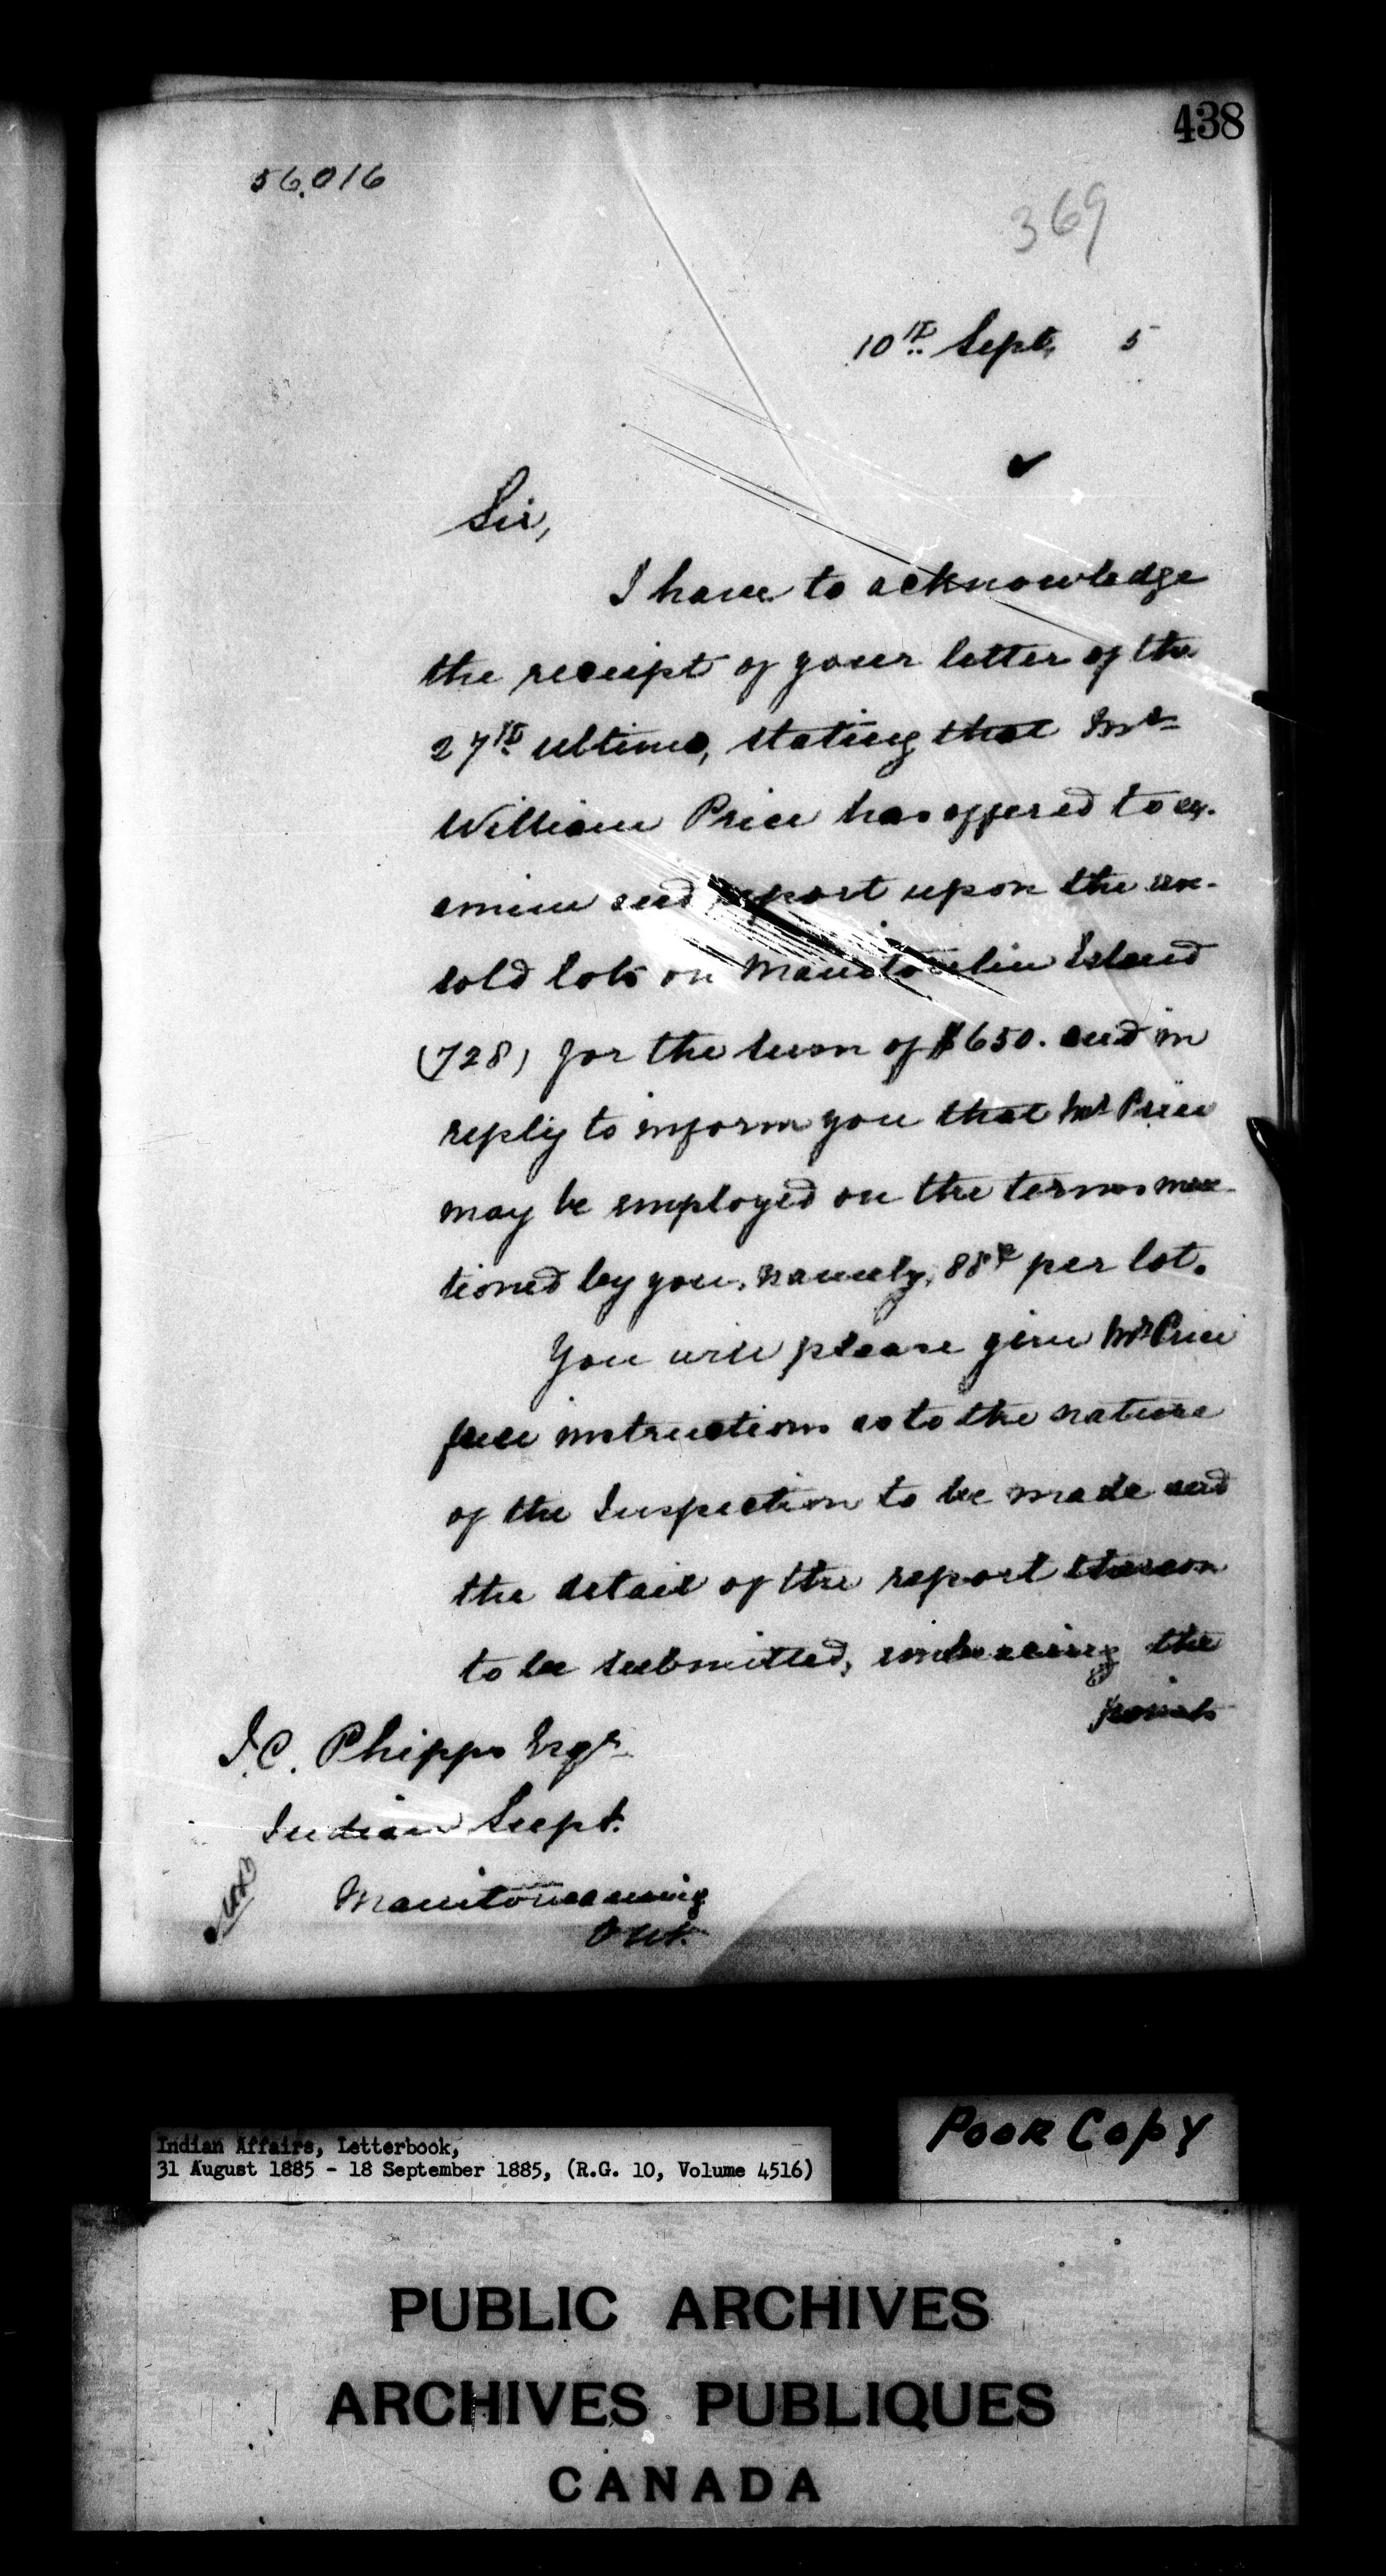 438
56.016
369
10th Sept. 5
Sir,
I have to acknowledge
the receipt of your letter of the
27th ultimo, stating that Mr
William Price has offered to ex-
amine and report upon the un-
sold lots on Manitoulin Island
(728) for the sum of $650. and in
reply to inform you that Mr Price
may be employed on the terms men-
tioned by you, namely, 88c per lot.
You will please give Mr Price
full instructions as to the nature
of the Inspection to be made and
the detail of the report thereon
to be submitted, embracing the
points
J.C. Phipps Esqr
Indian Supt.
Manitowaning
Ont.
Indian Affairs, Letterbook,
31 August 1885 - 18 September 1885, (R.G. 10, Volume 4516)
POOR COPY
PUBLIC ARCHIVES
ARCHIVES PUBLIQUES
CANADA